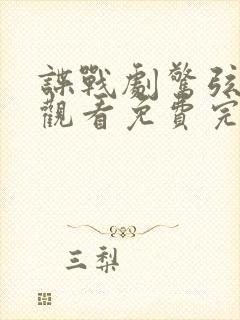 諜戰劇驚弦
觀看免費完
三梨